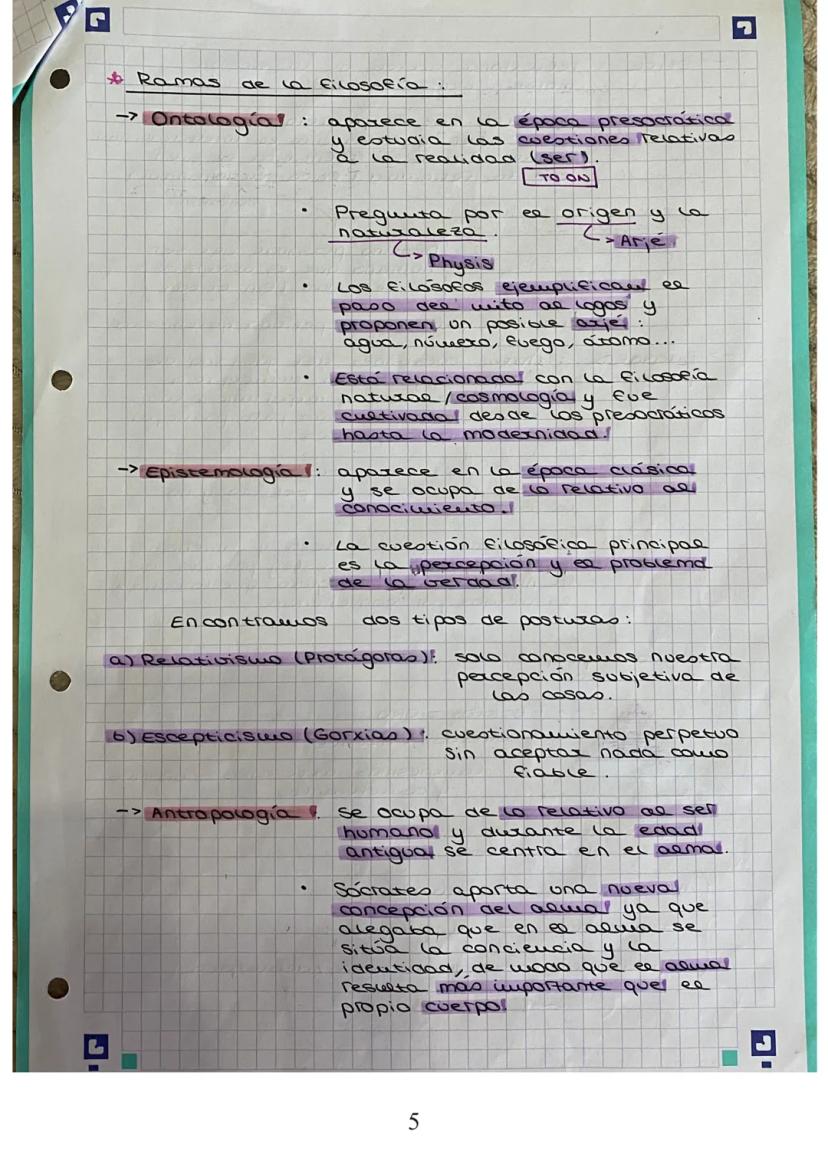 * Ramas de la filosofía:
-> Ontología: aparece en la época presocrática
y estudia las cuestiones relativas
a la realidad (ser).
TO ON
· Pregunta por el origen y la
naturaleza. -> Arjé
-> Physis
· Los filósofos ejemplifican el
paso del mito al logos y
proponen un posible arjé:
agua, número, fuego, átomo...
· Está relacionada con la filosofía
natural/cosmología y fue
cultivada desde los presocráticos
hasta la modernidad.
-> Epistemología: aparece en la época clásica
y se ocupa de lo relativo al
conocimiento.
· La cuestión filosófica principal
es la percepción y el problema
de la verdad.
Encontramos dos tipos de posturas:
a) Relativismo (Protágoras): solo conocemos nuestra
percepción subjetiva de
las cosas.
b) Escepticismo (Gorxias): cuestionamiento perpetuo
sin aceptar nada como
fiable.
-> Antropología: se ocupa de lo relativo al ser
humano y durante la edad
antigua se centra en el alma.
· Sócrates aporta una nueva
concepción del alma ya que
alegaba que en el alma se
sitúa la conciencia y la
identidad, de modo que el alma
resulta más importante que el
propio cuerpo
5